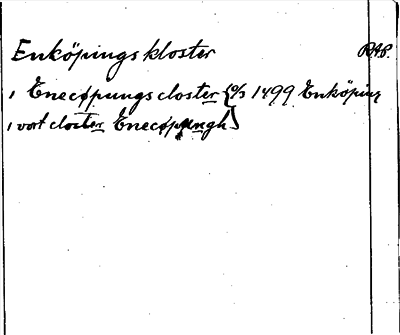 Enköpings kloster RAP.
ı Enecøpungs closter { 9/3 1499 Enköping
ı vort closter Enecøpungh }